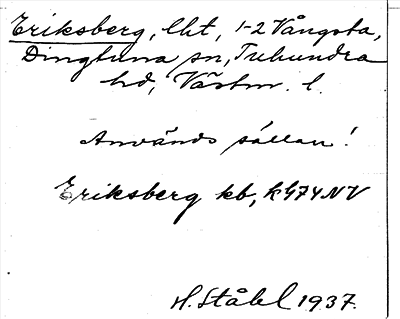 Eriksberg, lht, 1-2 Vångsta,
Dingtuna sn, Tuhundra
hd, Västm. l.
Används sällan!
Eriksberg kb, k G74 NV
H. Ståhl 1937.